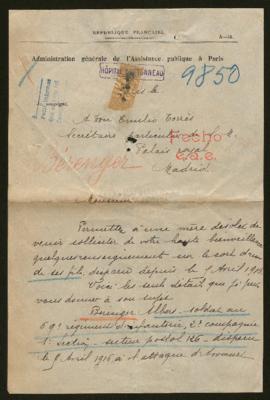 RÉPUBLIQUE FRANÇAISE
A-
Administration générale de l'Assistance publique à Paris
HÔPITAL
9850
le
A Don Emilio Torrès
Secrétaire Particulier de S. M.
Palais royal
Madrid
Fecho
c.a.e.
Bérenger
Monsieur
Permettez à une mère désolée de
venir solliciter de votre haute bienveillance
quelques renseignements sur le sort d'un
de ses fils disparu depuis le 9 Avril 1916
Voici les seuls détails que je puis
vous donner à son sujet
Berenger Albert - soldat au
69e régiment d'infanterie, 2e compagnie
1e section - secteur postal 126 - disparu
le 9 Avril 1916 à l'attaque d'